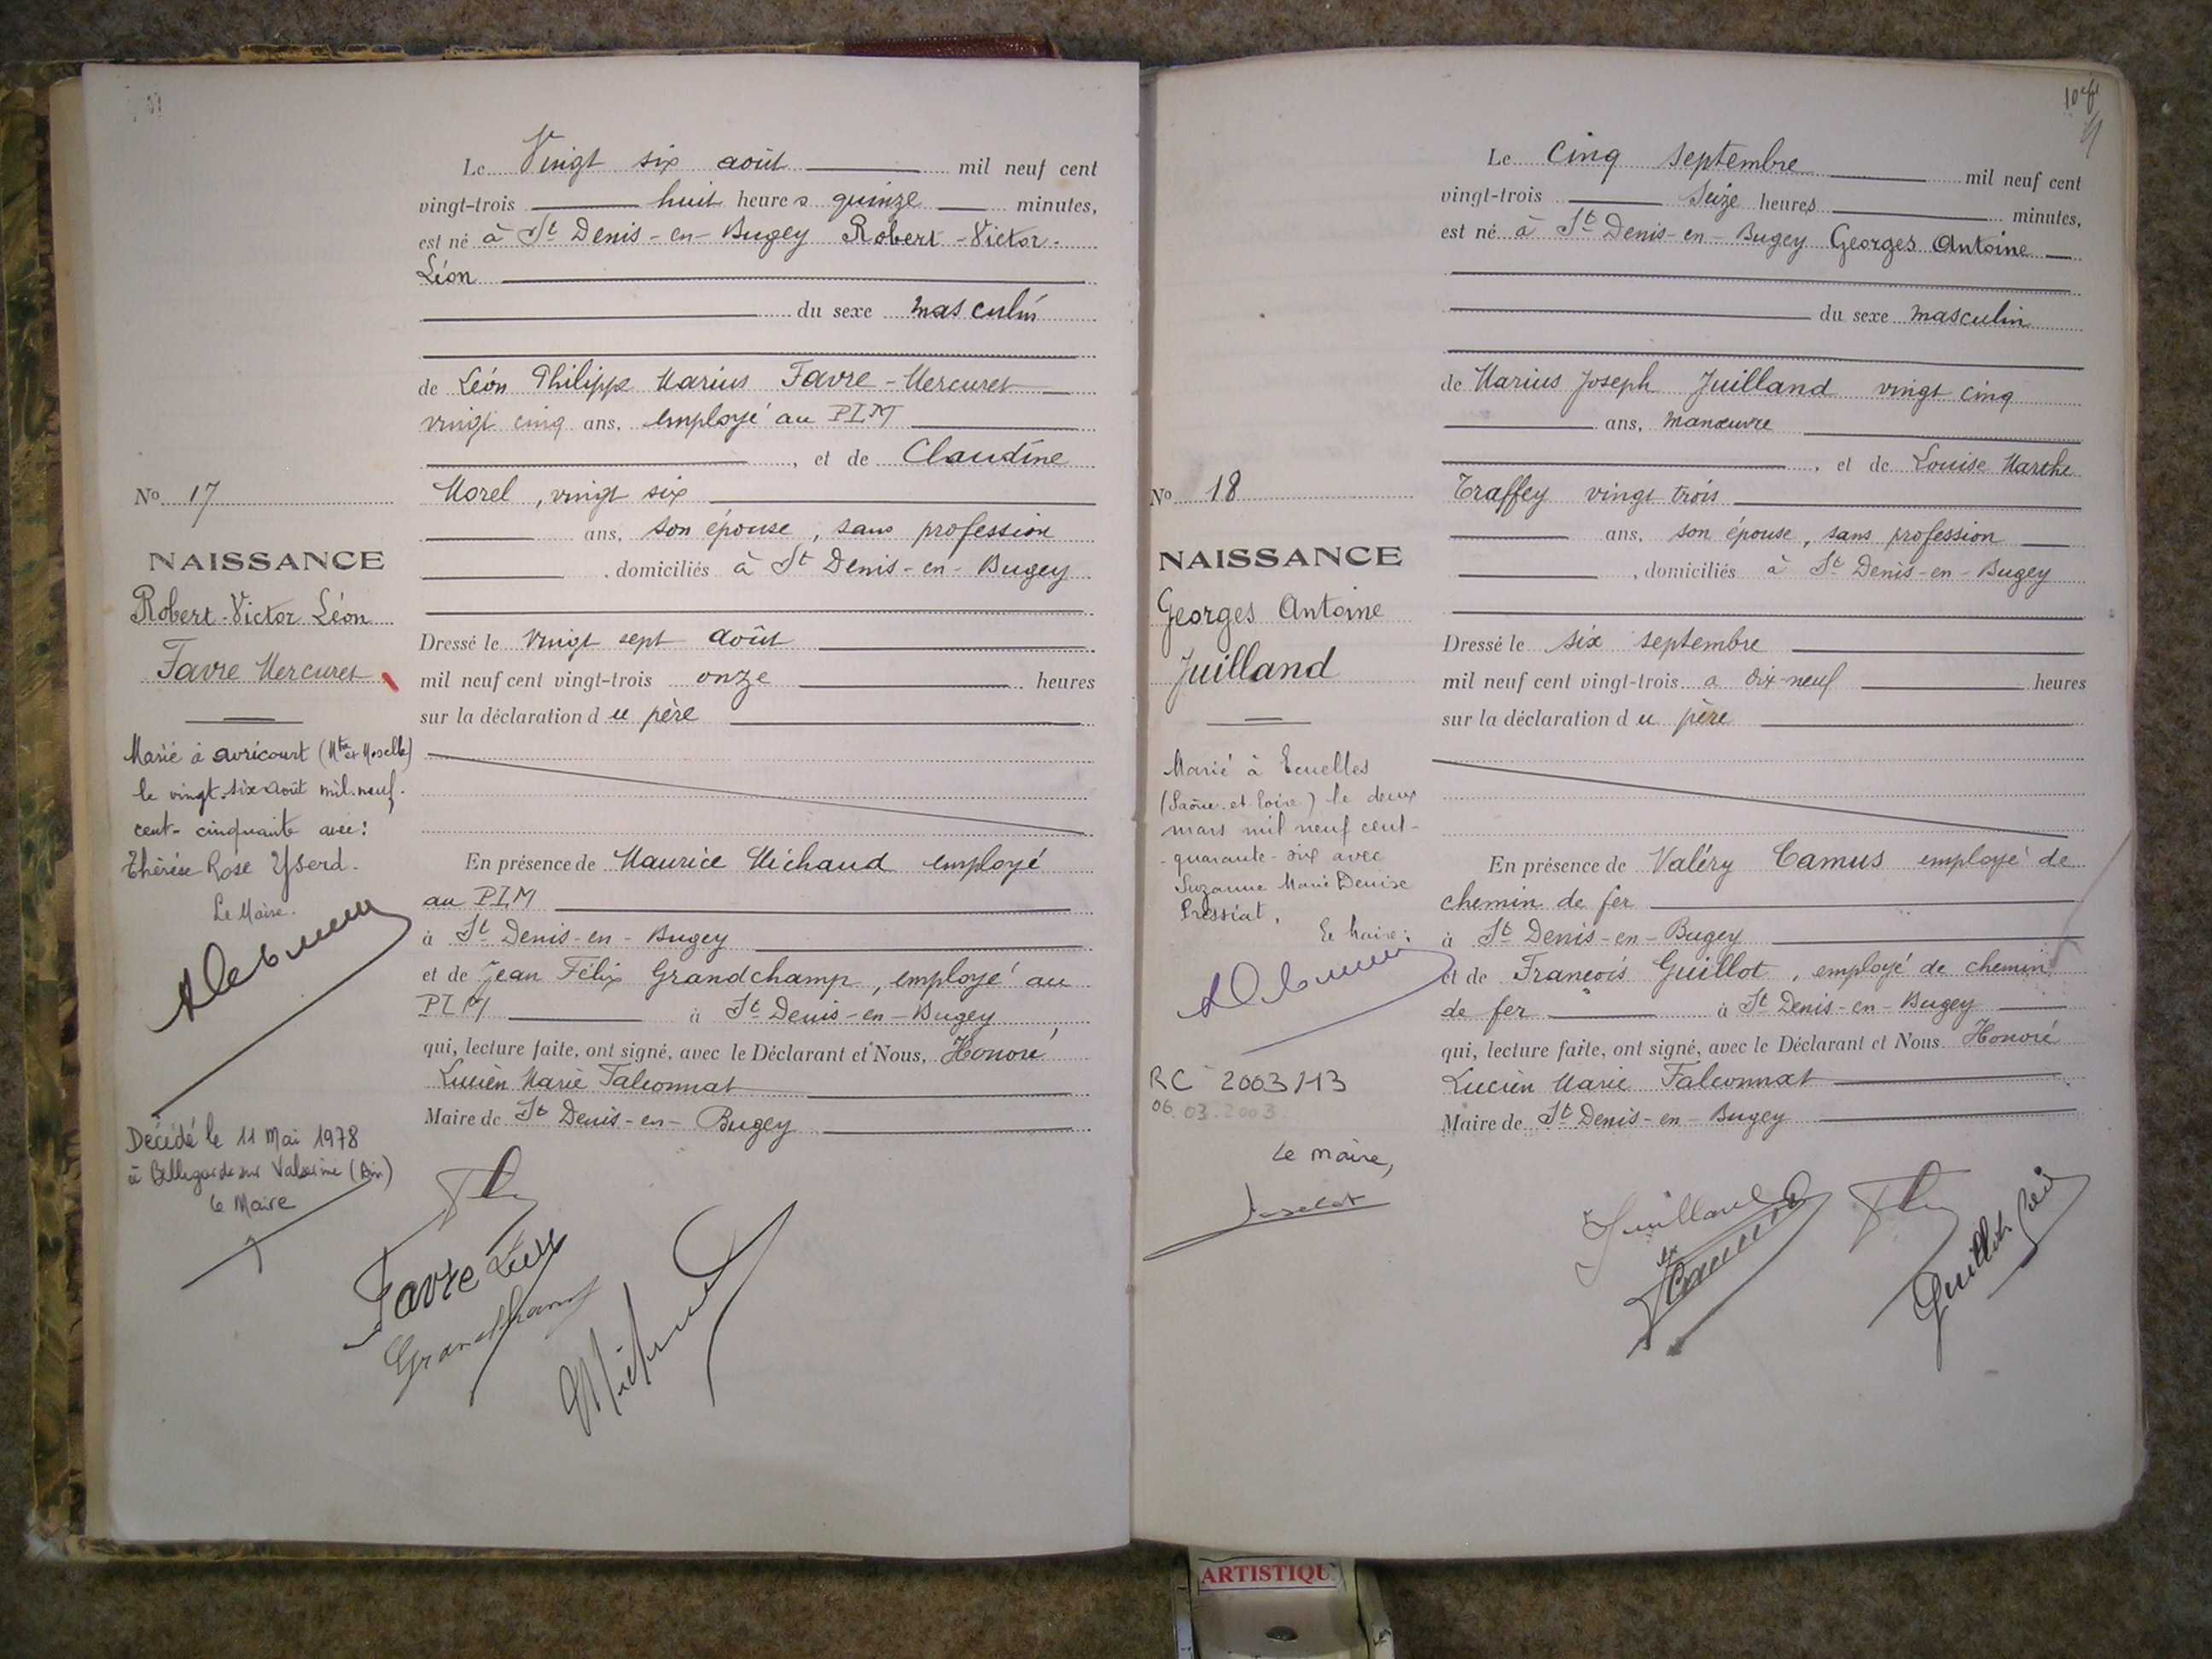 Le Vingt six août mil neuf cent
vingt-trois huit heures quinze minutes,
est né à St Denis-en-Bugey Robert-Victor-
Léon
du sexe masculin
de Léon Philippe Marius Favre-Mercuret
vingt cinq ans, employé au PLM
, et de Claudine
Morel, vingt six
ans, son épouse, sans profession
, domiciliés à St Denis-en-Bugey
Dressé le vingt sept août
mil neuf cent vingt-trois onze heures
sur la déclaration du père
En présence de Maurice Michaud employé
au PLM
à St Denis-en-Bugey
et de Jean Félix Grandchamp, employé au
PLM à St Denis-en-Bugey
qui, lecture faite, ont signé, avec le Déclarant et Nous, Honoré
Lucien Marie Falconnat
Maire de St Denis-en-Bugey
Favre
Grandchamp
No 17
NAISSANCE
Robert-Victor Léon
Favre Mercuret
Marié à Avricourt (Mthe et Moselle)
le vingt-six août mil-neuf-
cent-cinquante avec:
Thérèse Rose Yserd.
Le Maire.
Décédé le 11 Mai 1978
à Bellegarde sur Valserine (Ain)
Le Maire
Le Cinq septembre mil neuf cent
vingt-trois Seize heures minutes,
est né à St Denis-en-Bugey Georges Antoine
du sexe masculin
de Marius Joseph Juilland vingt cinq
ans, manœuvre
, et de Louise Marthe
Traffey vingt trois
ans, son épouse, sans profession
, domiciliés à St Denis-en-Bugey
Dressé le six septembre
mil neuf cent vingt-trois a dix-neuf heures
sur la déclaration du père
En présence de Valéry Camus employé de
chemin de fer
à St Denis-en-Bugey
et de François Guillot, employé de chemin
de fer à St Denis-en-Bugey
qui, lecture faite, ont signé, avec le Déclarant et Nous Honoré
Lucien Marie Falconnat
Maire de St Denis-en-Bugey
Juilland
Camus
Guillot
No 18
NAISSANCE
Georges Antoine
Juilland
Marié à Ecuelles
(Saône-et-Loire) le deux
mars mil neuf cent-
-quarante-six avec
Suzanne Marie Denise
Pressiat.
Le Maire:
RC 2003/13
06.03.2003
Le maire,
ARTISTIQU